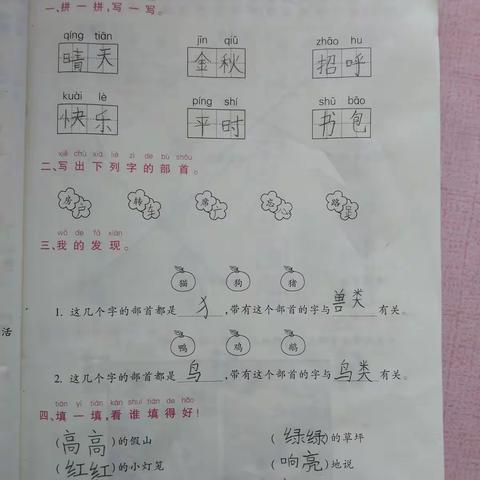 一、拼一拼,写一写。
qíng tiān jīn qiū zhāo hu
晴天 金秋 招呼
kuài lè píng shí shū bāo
快乐 平时 书包
xiě chū xià liè zì de bù shǒu
二、写出下列字的部首。
房 户 转 车 席 广 忘 心 路
wǒ de fā xiàn
三、我的发现。
猫 狗 猪
1. 这几个字的部首都是犭,带有这个部首的字与兽类有关。
鸭 鸡 鹅
活
2. 这几个字的部首都是鸟,带有这个部首的字与鸟类有关。
tián yi tián kàn shuí tián de hǎo
四、填一填,看谁填得好!
(高高)的假山 (绿绿)的草坪
(红红)的小灯笼 (响亮)地说